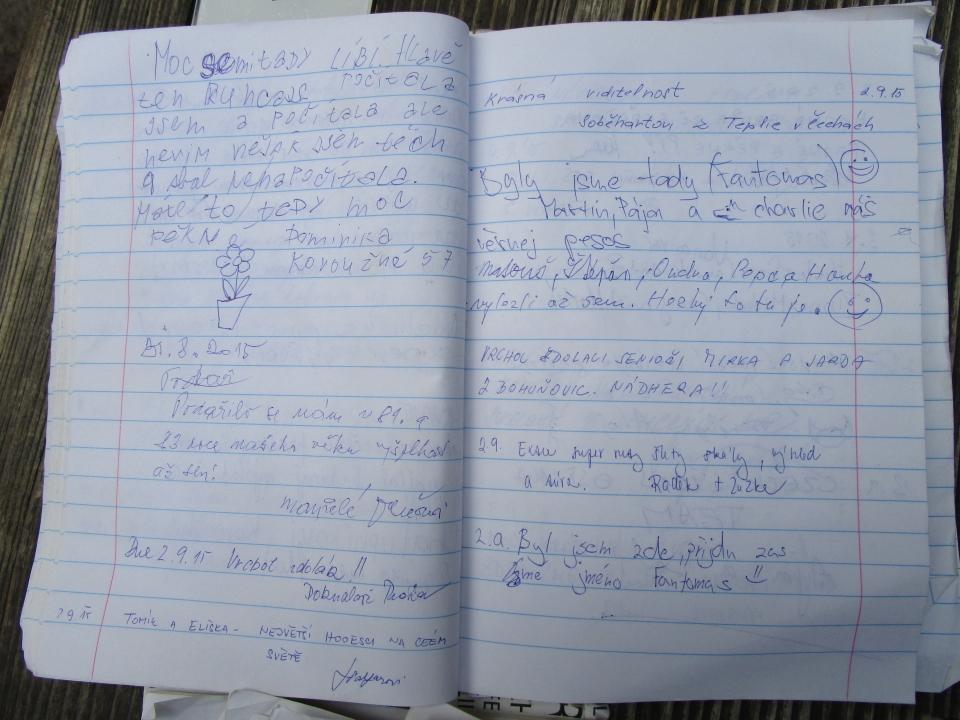 Moc se mi tADY LÍBÍ. HLAVĚ
ten počítala
jsem a počítala ale
nevím nějak jsem těch
9 stal nenapočítala.
Máte to tEDY moc
pěkN
Dominika
Koroužná 57
31.8.2015
Podařilo se nám v 81. a
83 roce našeho věku vyšplhat
až sem!
manželé
Dne 2.9.15 Vrchol zdolán!!
2.9.15 TOMÍK A ELIŠKA - NEJVĚTŠÍ HODESCI NA CELÉM
SVĚTĚ
Krásná viditelnost 2.9.15
Soběhartovi z Teplic v Čechách
Byly jsme tady (Fantomas)
Martin, Pájan a charlie náš
věrnej peses
Matouš, Štěpán, Ondra, Pepa a Hanka
vylezli až sem. Hezký to tu je.
VRCHOL ZDOLALI SENIOŘI MIRKA A JARDA
Z BOHUŇOVIC. NÁDHERA!!
2.9. super skály, výhled
a Radek + Zuzka
2.9. Byl jsem zde, přijdu zas
jméno Fantomas